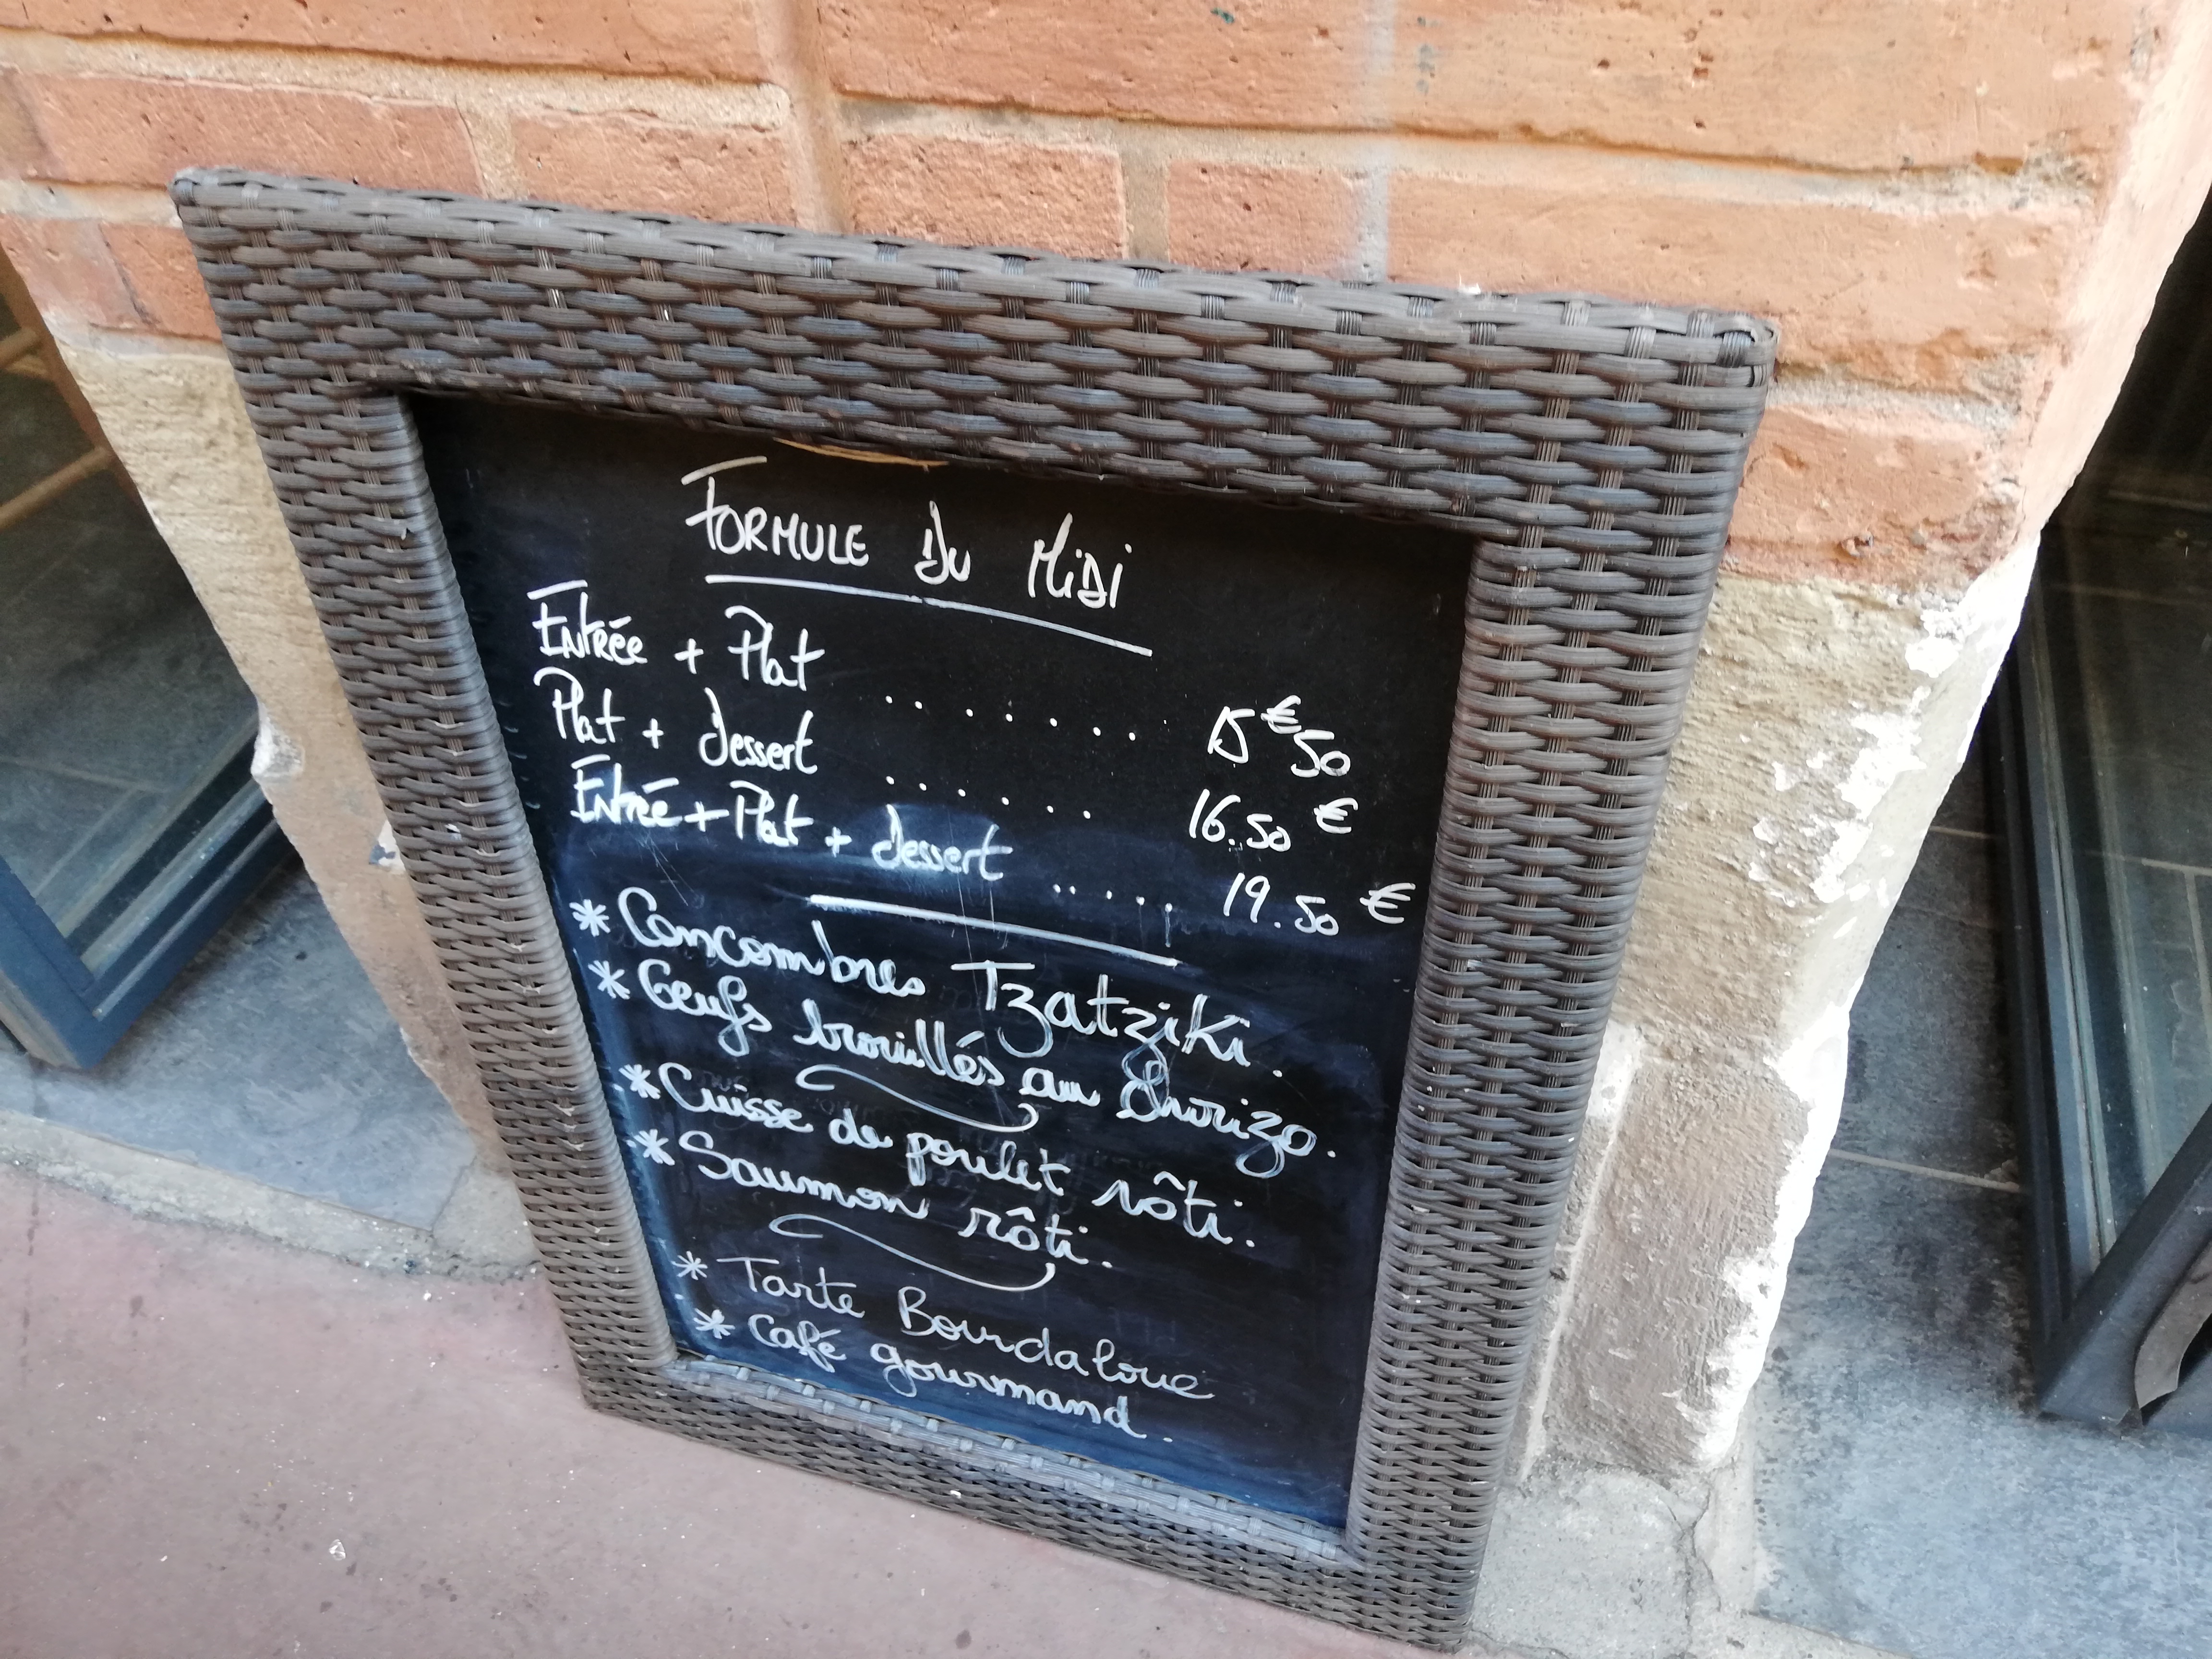 FORMULE DU MIDI
Entrée + Plat ........ 15€50
Plat + dessert ....... 16.50 €
Entrée + Plat + dessert ..... 19.50 €
* Concombres Tzatziki.
* Oeufs brouillés au Chorizo.
* Cuisse de poulet rôti.
* Saumon rôti.
* Tarte Bourdaloue
* Café gourmand.